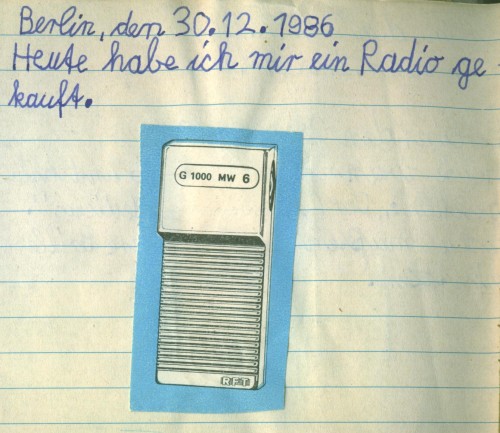 Berlin, den 30.12.1986
Heute habe ich mir ein Radio ge-
kauft.
G 1000 MW 6
RFT